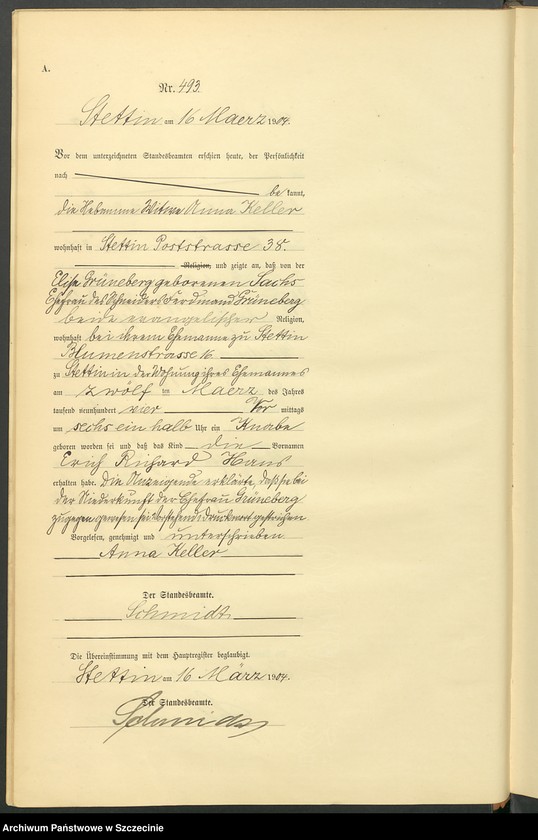 A.
Nr. 493.
Stettin am 16 Maerz 1904.
Vor dem unterzeichneten Standesbeamten erschien heute, der Persönlichkeit
nach
be kannt,
die Hebamme Witwe Anna Keller
wohnhaft in Stettin Poststrasse 38.
Religion, und zeigte an, daß von der
Elise Grüneberg geborenen Sachs
Ehefrau des Schneiders Ferdinand Grüneberg
beide evangelischer Religion,
wohnhaft bei ihrem Ehemanne zu Stettin
Blumenstrasse 16
zu Stettin in der Wohnung ihres Ehemannes
am zwölf ten Maerz des Jahres
tausend neunhundert vier Vor mittags
um sechs ein halb Uhr ein Knabe
geboren worden sei und daß das Kind die Vornamen
Erich Richard Hans
erhalten habe. Die Anzeigende erklärte, daß sie bei
der Niederkunft der Ehefrau Grüneberg
zugegen gewesen sei. Vorstehend 1 Druckwort gestrichen
Vorgelesen, genehmigt und unterschrieben
Anna Keller
Der Standesbeamte.
Schmidt
Die Übereinstimmung mit dem Hauptregister beglaubigt.
Stettin am 16 März 1904.
Der Standesbeamte.
Schmidt
Archiwum Państwowe w Szczecinie